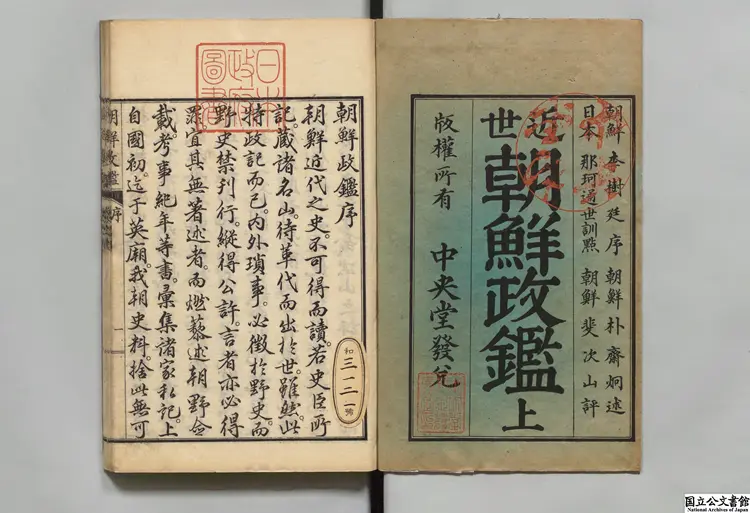 朝鮮 李樹廷 序 朝鮮 朴齊炯 述
日本 那珂通世訓點 朝鮮 裴次山 評
近世
朝鮮政鑑 上
版權所有 中央堂發兌
日本
政府
圖書
朝鮮政鑑序
朝鮮近代之史。不可得而讀。若史臣所
記。藏諸名山。待革代而出於世。雖然。此
特政記而已。内外瑣事。必徵於野史。而
野史禁刊行。縱得公許。言者亦必得
罪。宜其無著述者。而燃藜述朝野僉
載。考事紀年等書。彙集諸家私記。上
自國初。迄于英廟。我朝史料。捨此無可
和
三一二一
號
朝鮮政鑑 序
一
国立公文書館
National Archives of Japan